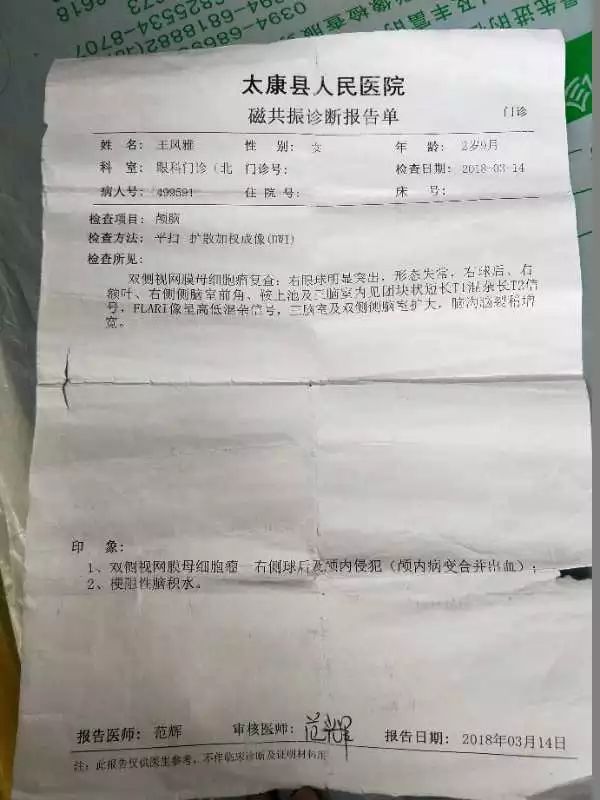 0394-6818882
6825534-8707
太康县人民医院
磁共振诊断报告单
门诊
姓 名: 王凤雅 性 别: 女 年 龄: 2岁9月
科 室: 眼科门诊(北 门诊号: 检查日期: 2018-03-14
病人号: 499591 住 院 号: 床 号:
检查项目: 颅脑
检查方法: 平扫 扩散加权成像(DWI)
检查所见:
双侧视网膜母细胞瘤复查: 右眼球明显突出, 形态失常, 右球后、右
额叶、右侧侧脑室前角、鞍上池及三脑室内见团块状短长T1混杂长T2信
号, FLARI像呈高低混杂信号, 三脑室及双侧侧脑室扩大, 脑沟脑裂稍增
宽。
印 象:
1、双侧视网膜母细胞瘤 右侧球后及颅内侵犯(颅内病变合并出血);
2、梗阻性脑积水。
报告医师: 范辉 审核医师: 范辉 报告日期: 2018年03月14日
注: 此报告仅供医生参考, 不作临床诊断及证明材料用